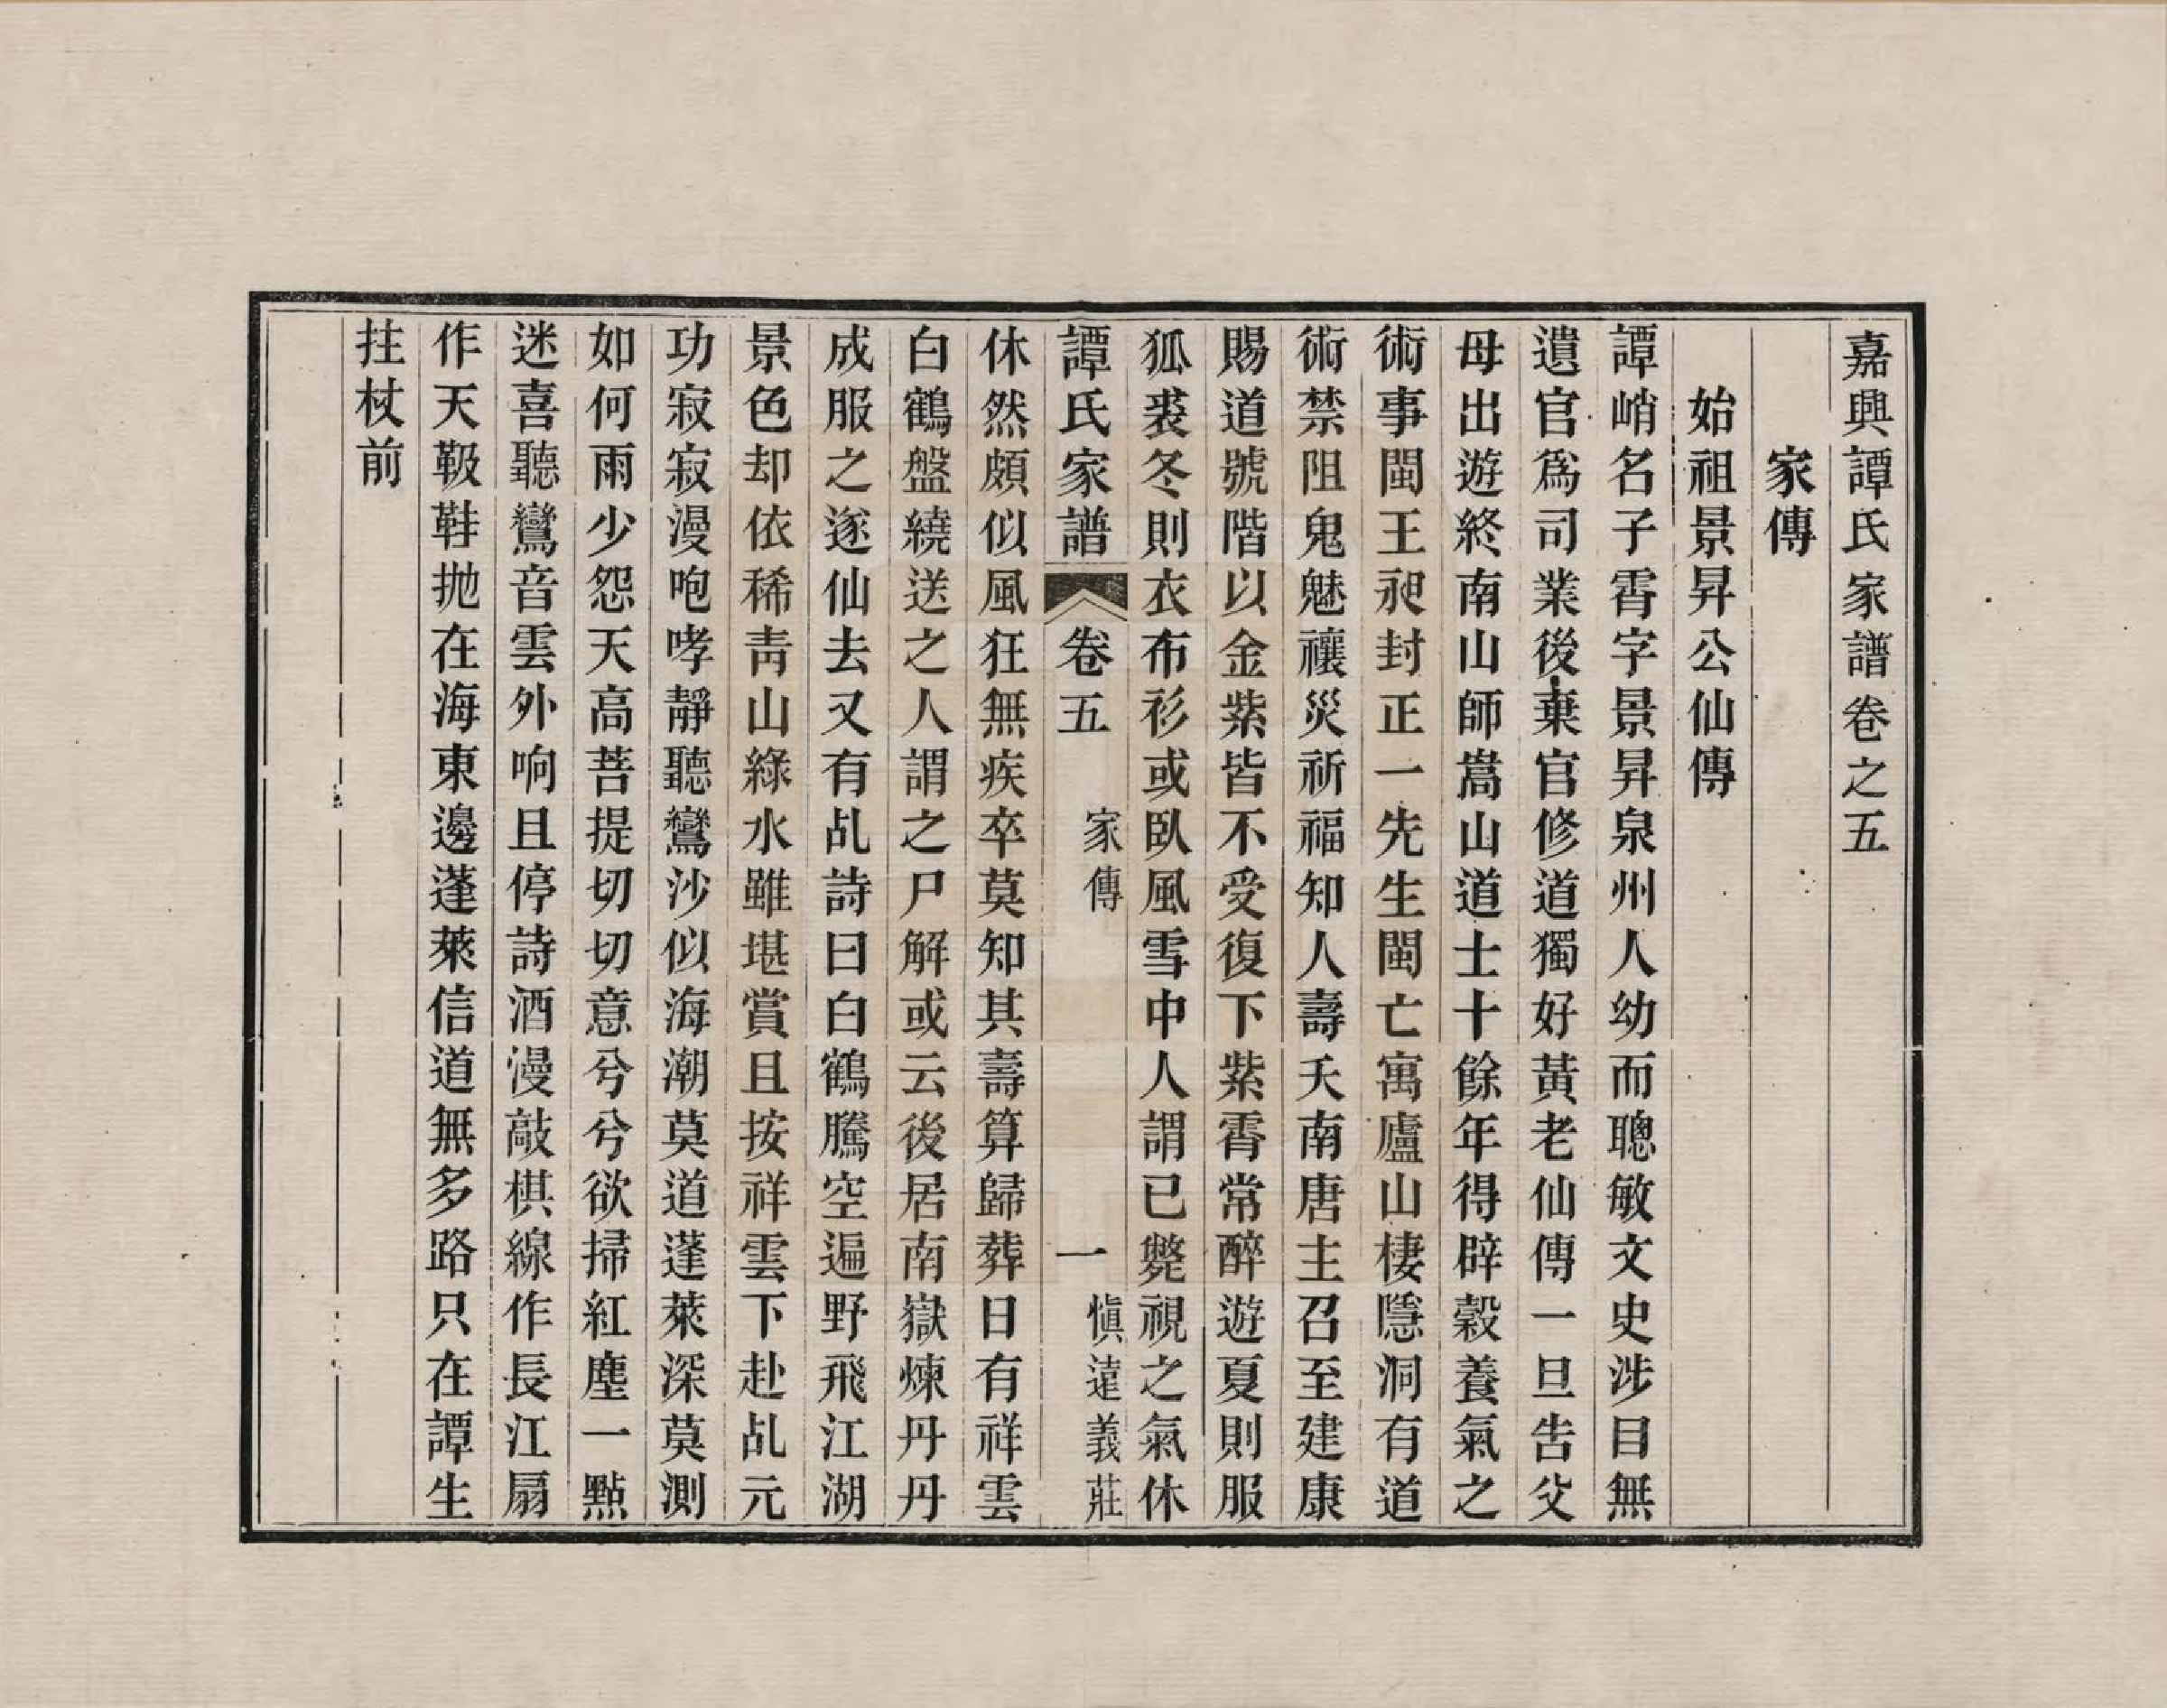 嘉興譚氏家譜卷之五
家傳
始祖景昇公仙傳
譚峭名子霄字景昇泉州人幼而聰敏文史涉目無
遺官爲司業後棄官修道獨好黃老仙傳一旦告父
母出遊終南山師嵩山道士十餘年得辟穀養氣之
術事閩王昶封正一先生閩亡寓廬山棲隱洞有道
術禁阻鬼魅禳災祈福知人壽夭南唐主召至建康
賜道號階以金紫皆不受復下紫霄常醉遊夏則服
狐裘冬則衣布衫或臥風雪中人謂已斃視之氣休
譚氏家譜 卷五 家傳 一 愼遠義莊
休然頗似風狂無疾卒莫知其壽算歸葬日有祥雲
白鶴盤繞送之人謂之尸解或云後居南嶽煉丹丹
成服之逐仙去又有乩詩曰白鶴騰空遍野飛江湖
景色却依稀靑山綠水雖堪賞且按祥雲下赴乩元
功寂寂漫咆哮靜聽鸞沙似海潮莫道蓬萊深莫測
如何雨少怨天高菩提切切意兮兮欲掃紅塵一點
迷喜聽鸞音雲外响且停詩酒漫敲棋線作長江扇
作天靸鞋抛在海東邊蓬萊信道無多路只在譚生
拄杖前